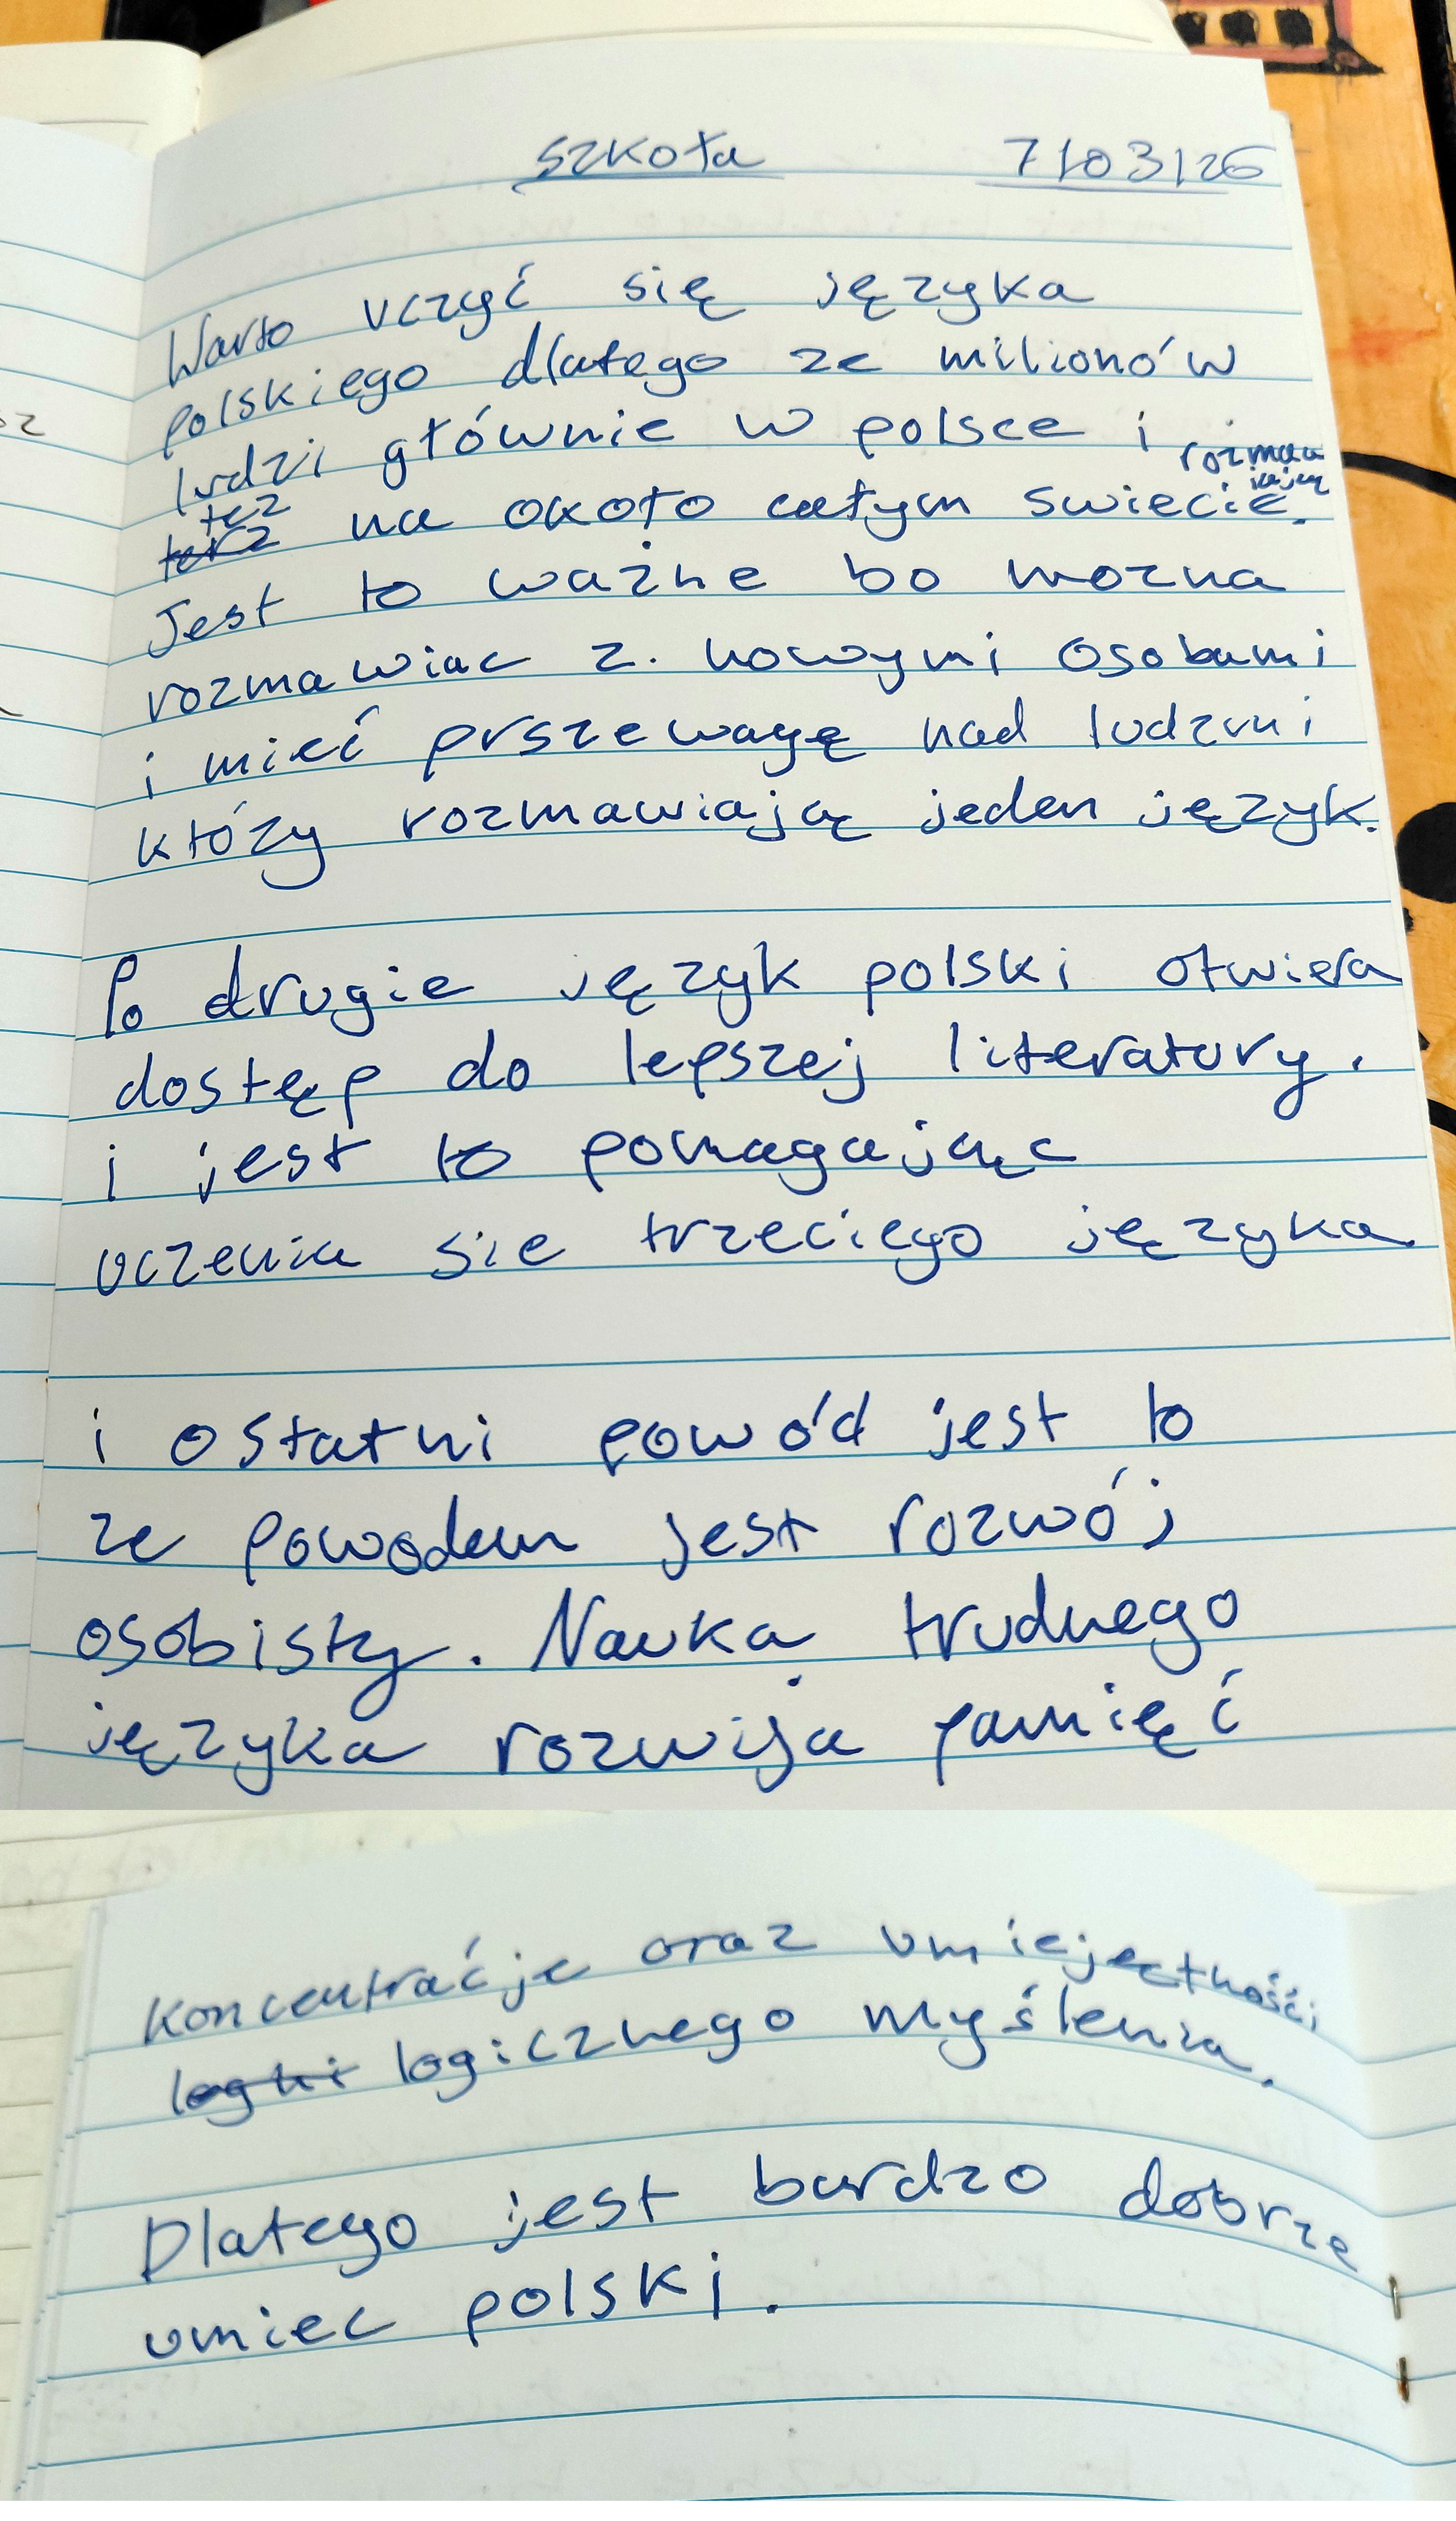 szkoła 7/03/26
Warto uczyć się języka
polskiego dlatego ze milionów
ludzi głównie w polsce i
też na około całym swiecie. rozmawiają
terz
Jest to ważne bo mozna
rozmawiac z. nowymi osobami
i mieć prszewagę nad ludzmi
którzy rozmawiają jeden język.
Po drugie język polski otwiera
dostęp do lepszej literatury.
i jest to pomagając
uczenia sie trzeciego języka.
i ostatni powód jest to
ze powodem jest rozwój
osobisty. Nauka trudnego
języka rozwija pamięć
koncentraćje oraz umiejętnośći
logicznego myślenia.
Dlatego jest bardzo dobrze
umiec polski.